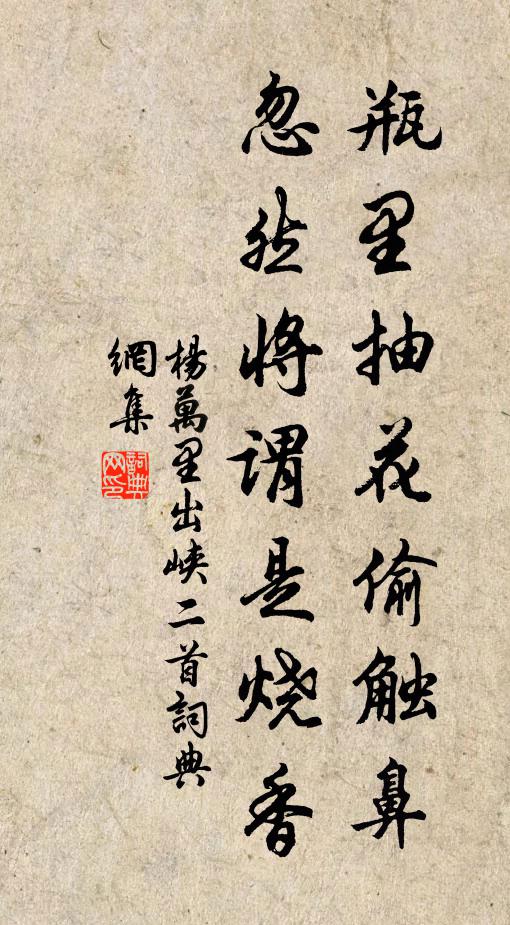 瓶里抽花偷触鼻
忽然将谓是烧香
楊萬里出峡二首詞典
網集
詞典
网印